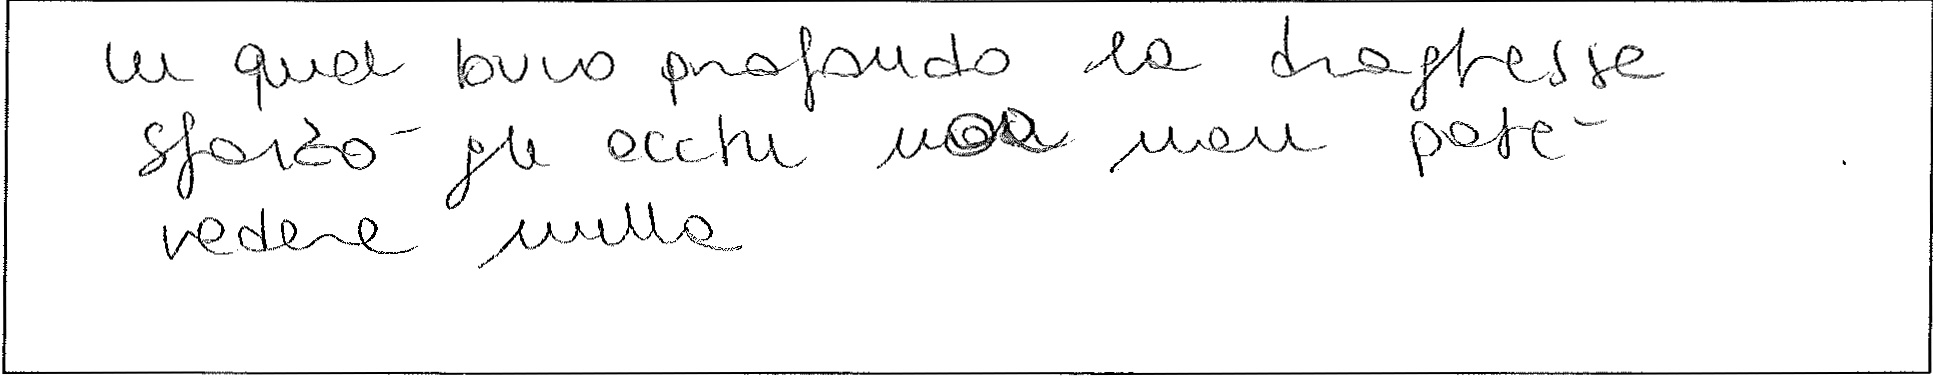 in quel buco profondo la draghessa
sforzò gli occhi ma non poté
vedere nulla